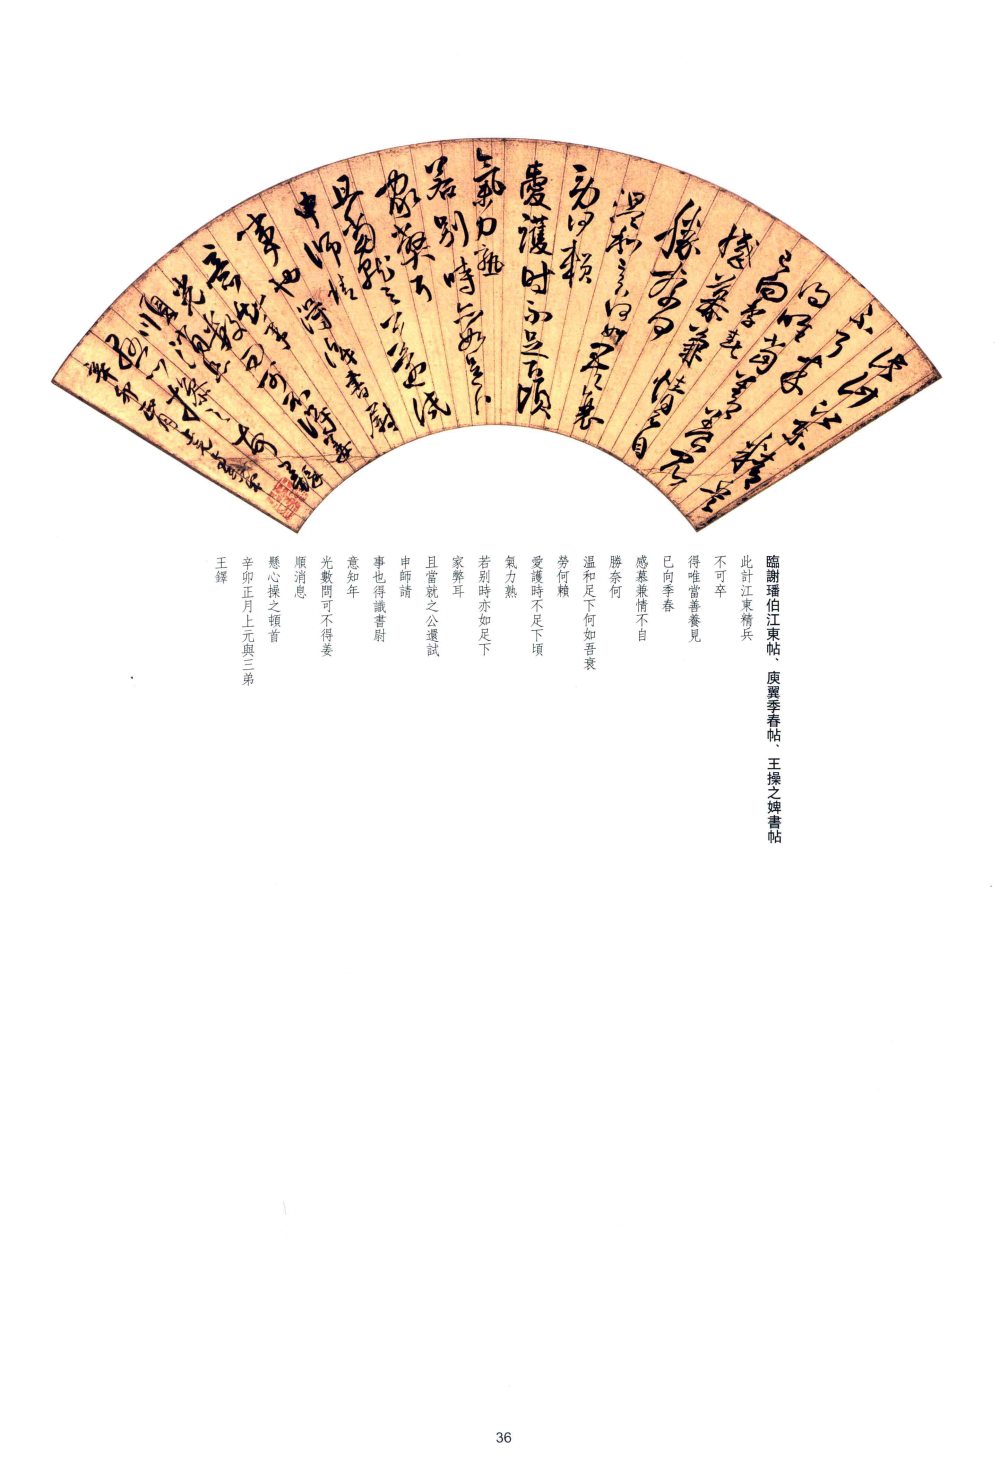 臨謝璠伯江東帖、庾翼季春帖、王操之婢書帖
此計江東精兵
不可卒
得唯當善養見
已向季春
感慕兼情不自
勝奈何
溫和足下何如吾衰
勞何賴
愛護時不足下頃
氣力熟
若別時亦如足下
家弊耳
且當就之公還試
申師請
事也得識書尉
意知年
光數問可不得姜
順消息
懸心操之頓首
辛卯正月上元與三弟
王鐸
36